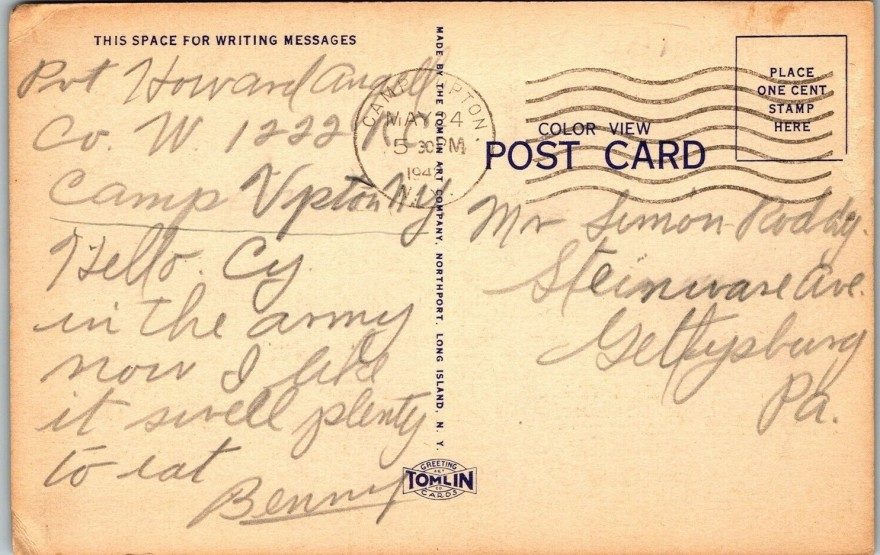 THIS SPACE FOR WRITING MESSAGES
Pvt Howard Angell
Co. W. 1222
Camp Upton N.Y.
Hello. Cy.
in the army
now I like
it swell plenty
to eat
Benny
MADE BY THE TOMLIN ART COMPANY, NORTHPORT, LONG ISLAND, N. Y.
GREETING
ART
TOMLIN
CO
CARDS
CAMP UPTON,
MAY 4
5 30 PM
194
N.Y.
COLOR VIEW
POST CARD
PLACE
ONE CENT
STAMP
HERE
Mr Simon Roddy.
Steinware Ave.
Gettysburg
Pa.